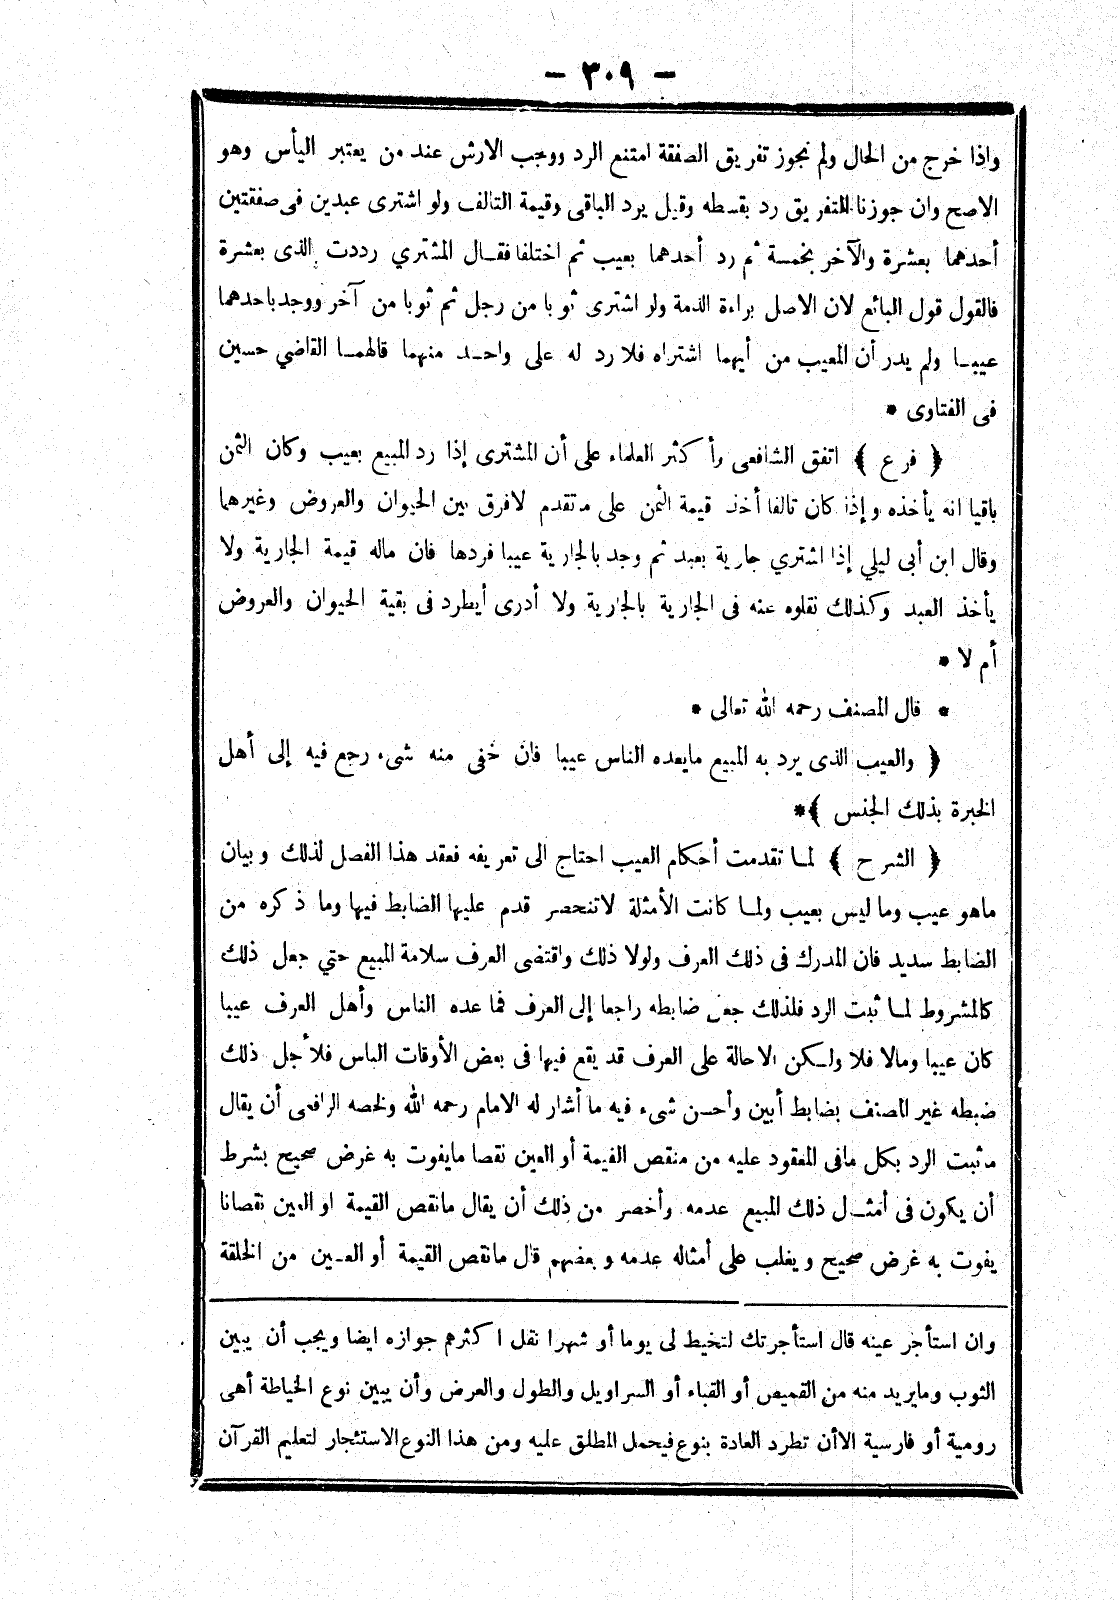 - ٣٠٩ -
واذا خرج من الحال ولم نجوز تفريق الصفقة امتنع الرد ووجب الارش عند من يعتبر اليأس وهو
الاصح وان جوزنا التفريق رد بقسطه وقيل يرد الباقى وقيمة التالف ولو اشترى عبدين فى صفقتين
أحدهما بعشرة والآخر بخمسة ثم رد أحدهما بعيب ثم اختلفا فقال المشتري رددت الذى بعشرة
فالقول قول البائع لان الاصل براءة الذمة ولو اشترى ثوبا من رجل ثم ثوبا من آخر ووجد باحدهما
عيبا ولم يدر أن المعيب من أيهما اشتراه فلا رد له على واحد منهما قالهما القاضي حسين
فى الفتاوى *
﴿ فرع ﴾ اتفق الشافعى وأكثر العلماء على أن المشترى إذا رد المبيع بعيب وكان الثمن
باقيا انه يأخذه وإذا كان تالفا أخذ قيمة الثمن على ما تقدم لافرق بين الحيوان والعروض وغيرهما
وقال ابن أبى ليلي إذا اشتري جارية بعبد ثم وجد بالجارية عيبا فردها فان ماله قيمة الجارية ولا
يأخذ العبد وكذلك نقلوه عنه فى الجارية بالجارية ولا أدرى أيطرد فى بقية الحيوان والعروض
أم لا *
* قال المصنف رحمه الله تعالى *
﴿ والعيب الذى يرد به المبيع مايعده الناس عيبا فان خفى منه شىء رجع فيه إلى أهل
الخبرة بذلك الجنس ﴾*
﴿ الشرح ﴾ لما تقدمت أحكام العيب احتاج الى تعريفه فعقد هذا الفصل لذلك وبيان
ماهو عيب وما ليس بعيب ولما كانت الأمثلة لاتنحصر قدم عليها الضابط فيها وما ذكره من
الضابط سديد فان المدرك فى ذلك العرف ولولا ذلك واقتضى العرف سلامة المبيع حتي جعل ذلك
كالمشروط لما ثبت الرد فلذلك جعل ضابطه راجعا إلى العرف فما عده الناس وأهل العرف عيبا
كان عيبا ومالا فلا ولكن الاحالة على العرف قد يقع فيها فى بعض الأوقات الباس فلأجل ذلك
ضبطه غير المصنف بضابط أبين وأحسن شىء فيه ما أشار له الامام رحمه الله ولخصه الرافعى أن يقال
مثبت الرد بكل مافى المعقود عليه من منقص القيمة أو العين نقصا مايفوت به غرض صحيح بشرط
أن يكون فى أمثال ذلك المبيع عدمه وأخصر من ذلك أن يقال مانقص القيمة او العين نقصانا
يفوت به غرض صحيح ويغلب على أمثاله عدمه وبعضهم قال مانقص القيمة أو العين من الخلقة
وان استأجر عينه قال استأجرتك لتخيط لى يوما أو شهرا نقل اكثرهم جوازه ايضا ويجب أن يبين
الثوب ومايريد منه من القميص أو القباء أو السراويل والطول والعرض وأن يبين نوع الخياطة أهى
رومية أو فارسية الاأن تطرد العادة بنوع فيحمل المطلق عليه ومن هذا النوع الاستئجار لتعليم القرآن